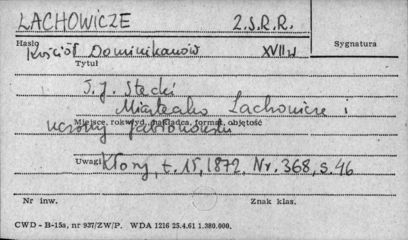 LACHOWICZE Z.S.R.R.
Hasło Sygnatura
Kościół Dominikanów XVII w
Tytuł
T. J. Stecki
Miasteczko Lachowicze i
Miejsce, rok wyd., nakładca, format, objętość
uczony Jabłonowski
Uwagi Kłosy, t. 15, 1872, Nr. 368, s. 46
Nr inw. Znak klas.
CWD - B-15a, nr 937/ZW/P. WDA 1216 25.4.61 1.380.000.